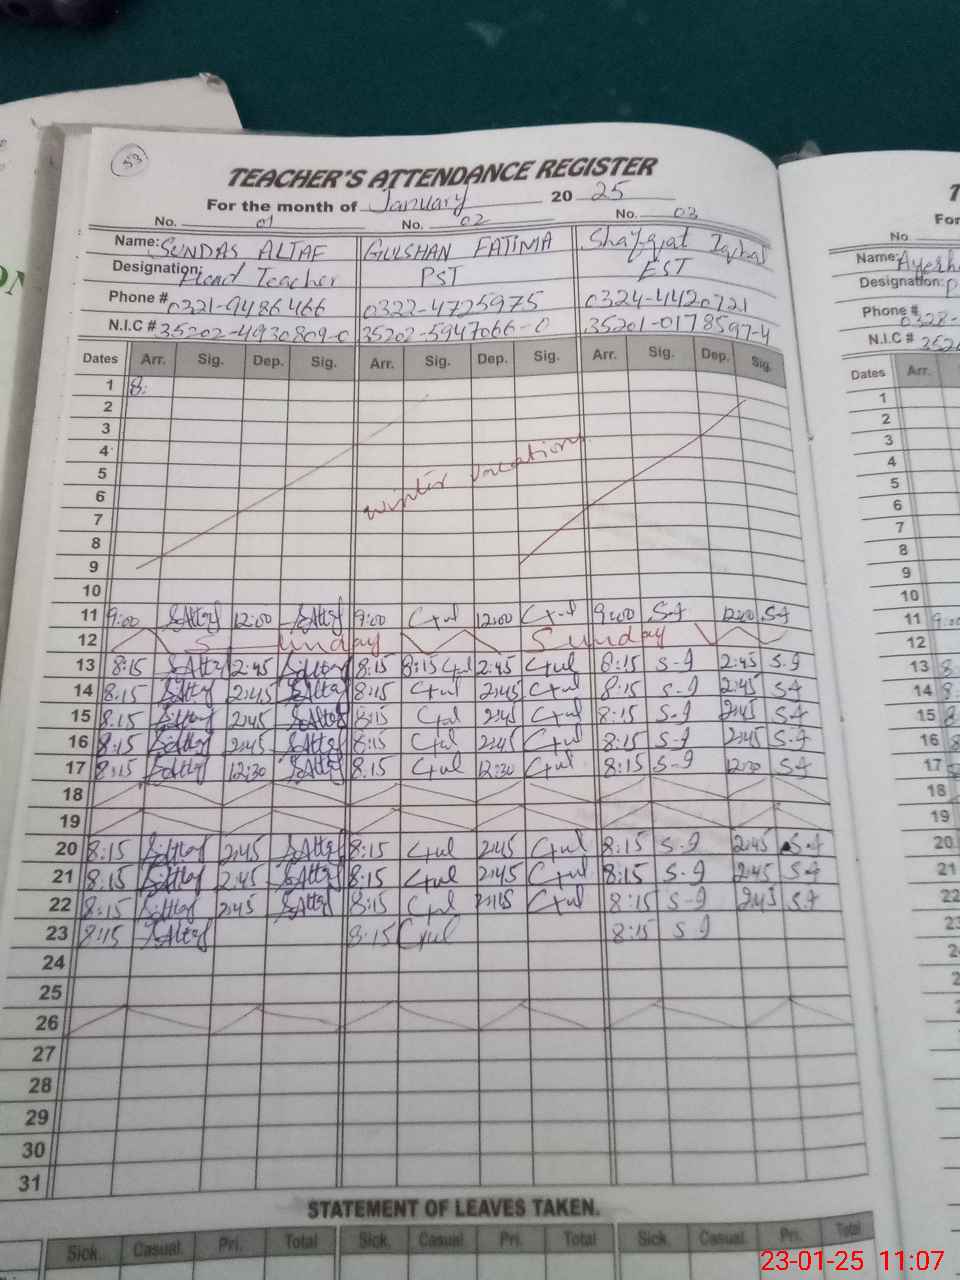 53
TEACHER'S ATTENDANCE REGISTER
For the month of January 20 25
No. 01 No. 02 No. 03
Name: SUNDAS ALTAF GULSHAN FATIMA Shafqat Iqbal
Designation: Head Teacher PST EST
Phone # 0321-9486466 0322-4725975 0324-4420721
N.I.C # 35202-4930809-0 35202-5947066-0 35201-0178597-4
Dates Arr. Sig. Dep. Sig. Arr. Sig. Dep. Sig. Arr. Sig. Dep. Sig.
1 8:
2
3
4
winter vacations
5
6
7
8
9
10
11 9:00 S.Altaf 12:00 S.Altaf 9:00 Gul 12:00 Gul 9:00 S-I 12:00 S-I
12 Sunday Sunday
13 8:15 S.Altaf 2:45 S.Altaf 8:15 8:15 Gul 2:45 Gul 8:15 S-I 2:45 S-I
14 8:15 S.Altaf 2:45 S.Altaf 8:15 Gul 2:45 Gul 8:15 S-I 2:45 S-I
15 8:15 S.Altaf 2:45 S.Altaf 8:15 Gul 2:45 Gul 8:15 S-I 2:45 S-I
16 8:15 S.Altaf 2:45 S.Altaf 8:15 Gul 2:45 Gul 8:15 S-I 2:45 S-I
17 8:15 S.Altaf 12:30 S.Altaf 8:15 Gul 12:30 Gul 8:15 S-I 12:30 S-I
18
19
20 8:15 S.Altaf 2:45 S.Altaf 8:15 Gul 2:45 Gul 8:15 S-I 2:45 S-I
21 8:15 S.Altaf 2:45 S.Altaf 8:15 Gul 2:45 Gul 8:15 S-I 2:45 S-I
22 8:15 S.Altaf 2:45 S.Altaf 8:15 Gul 2:45 Gul 8:15 S-I 2:45 S-I
23 8:15 S.Altaf 8:15 Gul 8:15 S-I
24
25
26
27
28
29
30
31
STATEMENT OF LEAVES TAKEN.
Sick. Casual. Pri. Total Sick. Casual. Pri. Total Sick. Casual. Pri. Total
No
Name:
Designation:
Phone # 0328-
N.I.C #
Dates Arr.
1
2
3
4
5
6
7
8
9
10
11
12
13
14
15
16
17
18
19
20
21
22
23-01-25 11:07